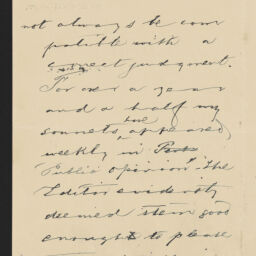 not always be com
patible with a
correct judgment.
For over a year
and a half my
sonnets have appeared
weekly in
"Public Opinion" The
Editor evidently
deemed them good
enough to please